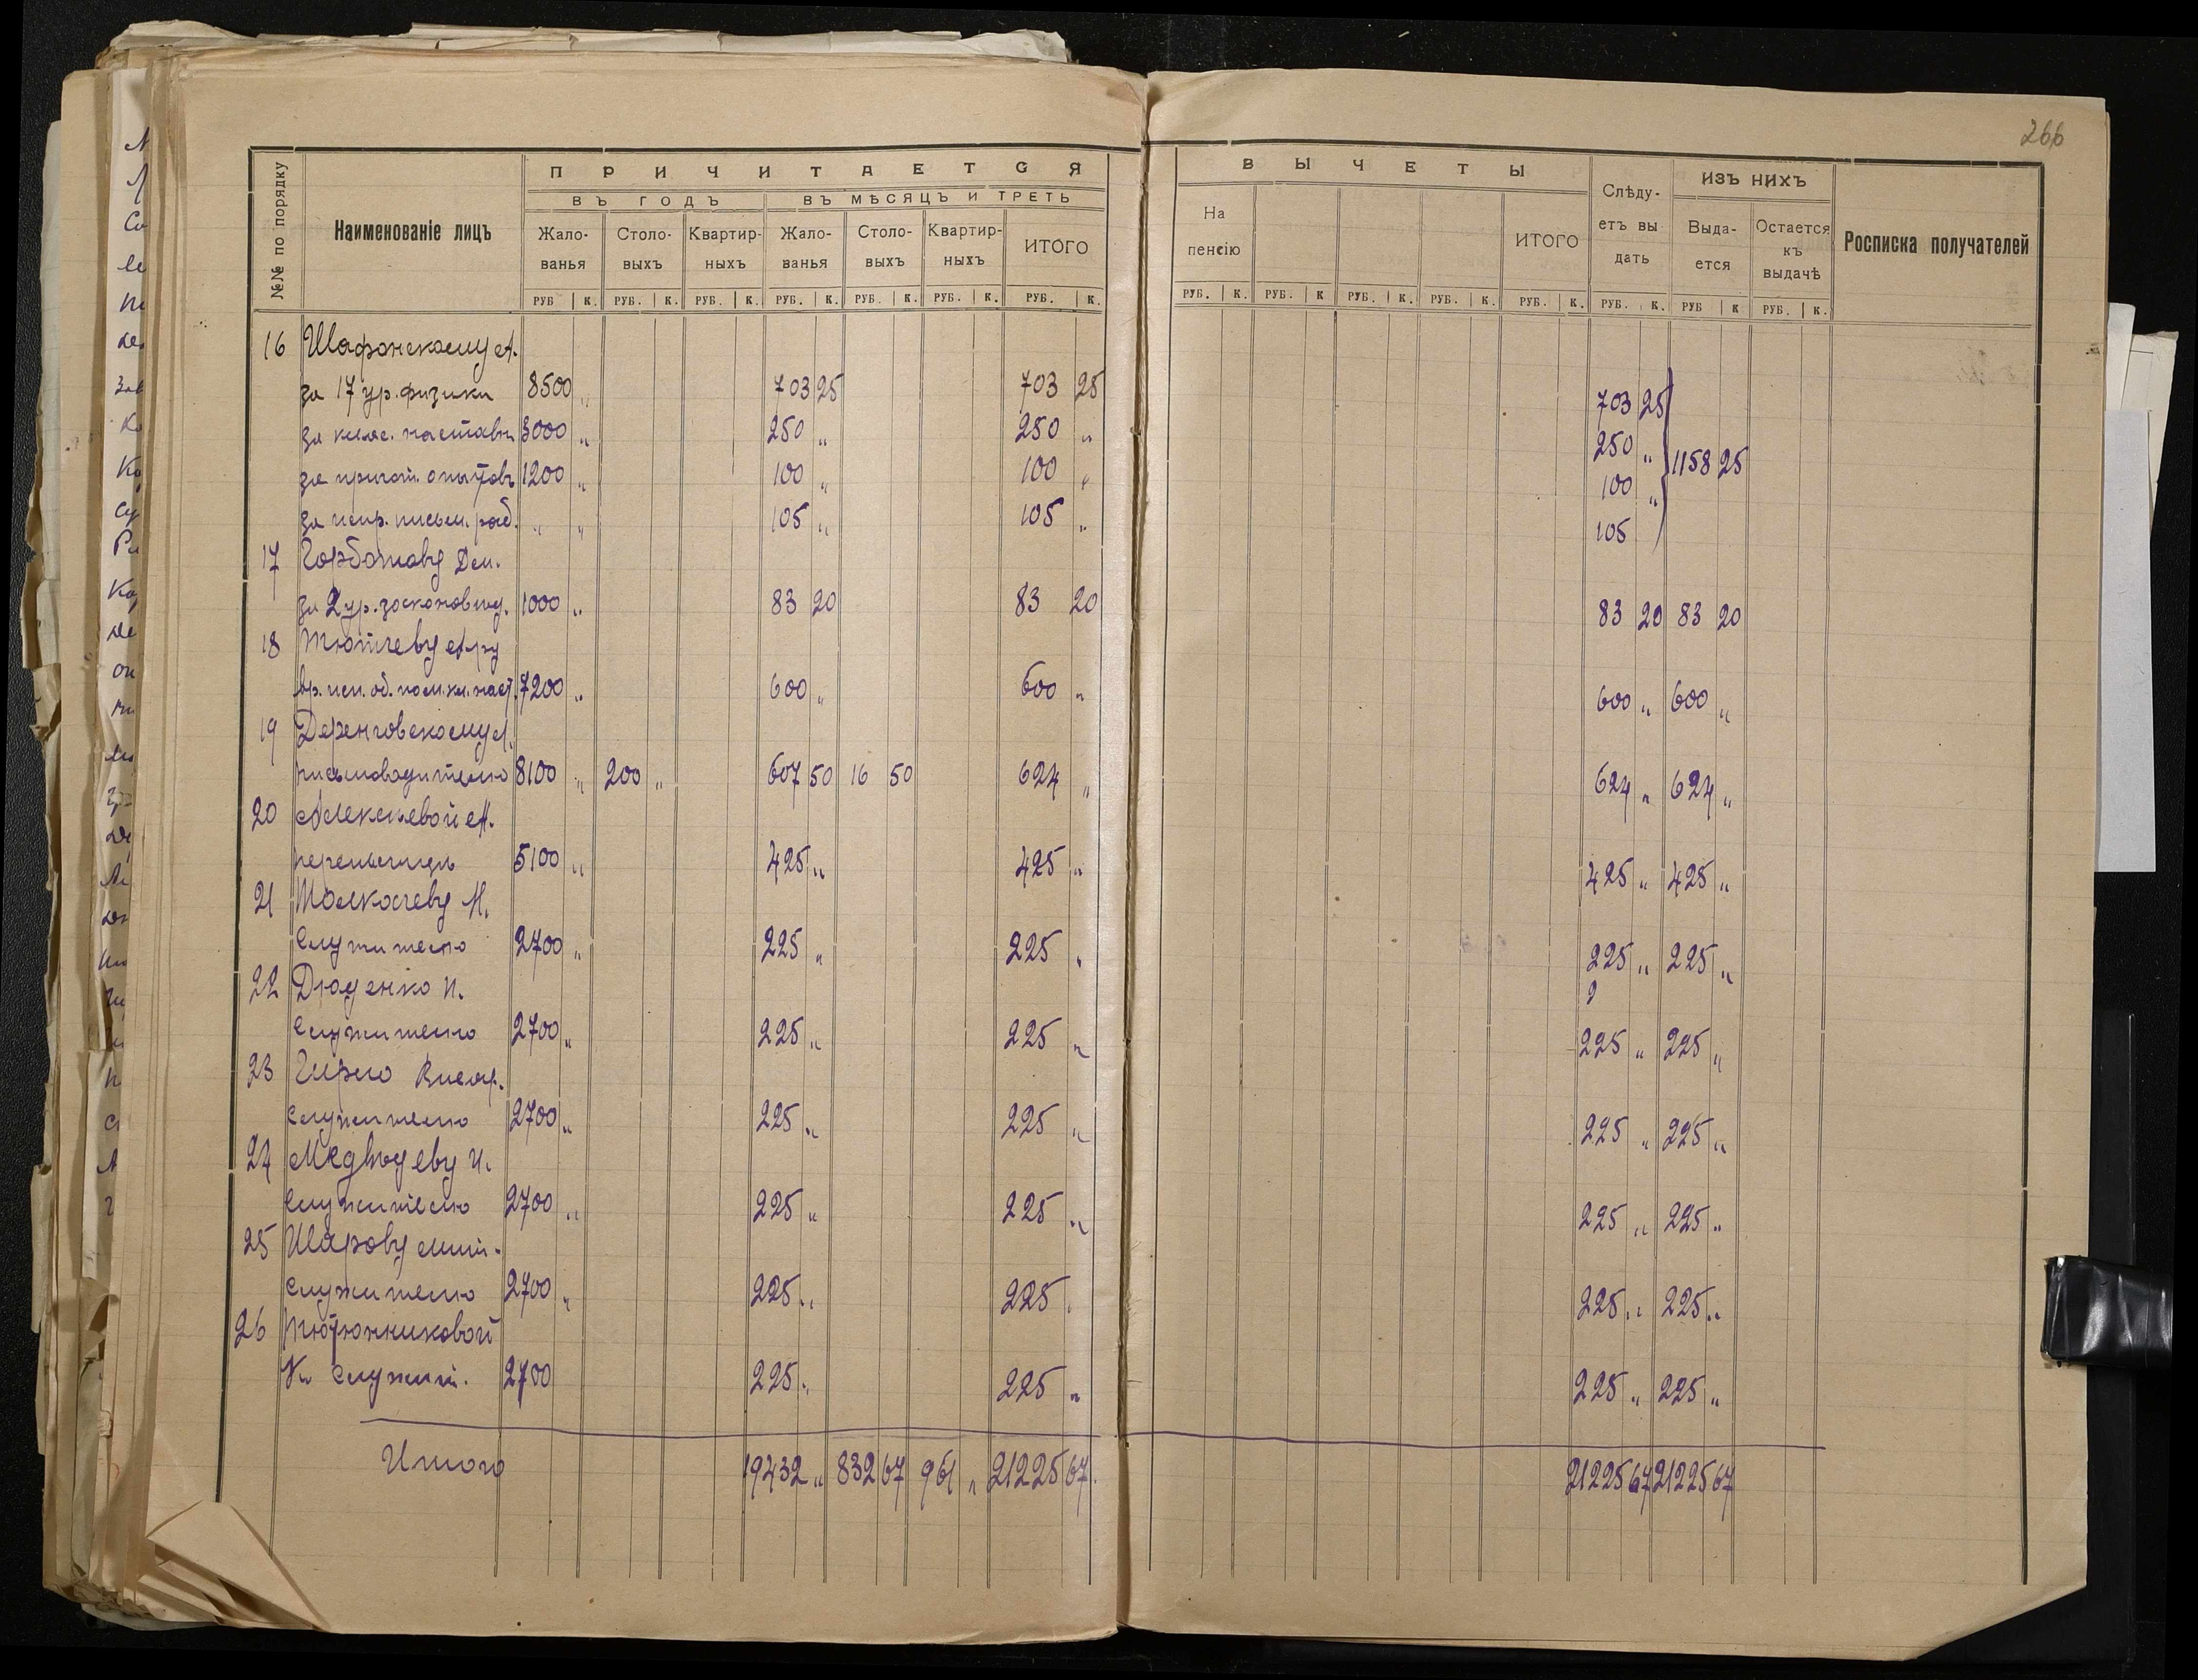 266
№№ по порядку
Наименованіе лицъ
ПРИЧИТАЕТСЯ
ВЪ ГОДЪ
ВЪ МѢСЯЦЪ И ТРЕТЬ
Жало-ванья
Столо-выхъ
Квартир-ныхъ
Жало-ванья
Столо-выхъ
Квартир-ныхъ
ИТОГО
РУБ К. РУБ. К. РУБ. К. РУБ. К. РУБ. К. РУБ. К. РУБ. К.
ВЫЧЕТЫ
На пенсію
ИТОГО
Слѣду-етъ вы дать
ИЗЪ НИХЪ
Выда-ется
Остается къ выдачѣ
Росписка получателей
РУБ. К. РУБ. К РУБ. К. РУБ. К. РУБ. К. РУБ. К. РУБ К РУБ. К.
16 Шафонскому А.
за 17 ур. физики 8500 „ 703 25 703 25 703 25
за клас. наставн 3000 „ 250 „ 250 „ 250 „ 1158 25
за пригот. опытовъ 1200 „ 100 „ 100 „ 100 „
за испр. письм. раб. „ „ 105 „ 105 „ 105
17 Горбатову Дм.
за 2 ур. 1000 „ 83 20 83 20 83 20 83 20
18 Тютчеву Ал-ру
вр. исп. об. пом. кл. наст. 7200 „ 600 „ 600 „ 600 „ 600 „
19
письмоводителю 8100 „ 200 „ 607 50 16 50 624 „ 624 „ 624 „
20 Алексѣевой А.
переписчицѣ 5100 „ 425 „ 425 „ 425 „ 425 „
21 Толкачеву М.
служителю 2700 „ 225 „ 225 „ 225 „ 225 „
22 Дюденко И.
служителю 2700 „ 225 „ 225 „ 225 „ 225 „
23
служителю 2700 „ 225 „ 225 „ 225 „ 225 „
24 Медвѣдеву И.
служителю 2700 „ 225 „ 225 „ 225 „ 225 „
25 Шарову
служителю 2700 „ 225 „ 225 „ 225 „ 225 „
26 Тютюнниковой
К. служит. 2700 225 „ 225 „ 225 „ 225 „
Итого 19432 „ 832 67 961 „ 21225 67 21225 67 21225 67